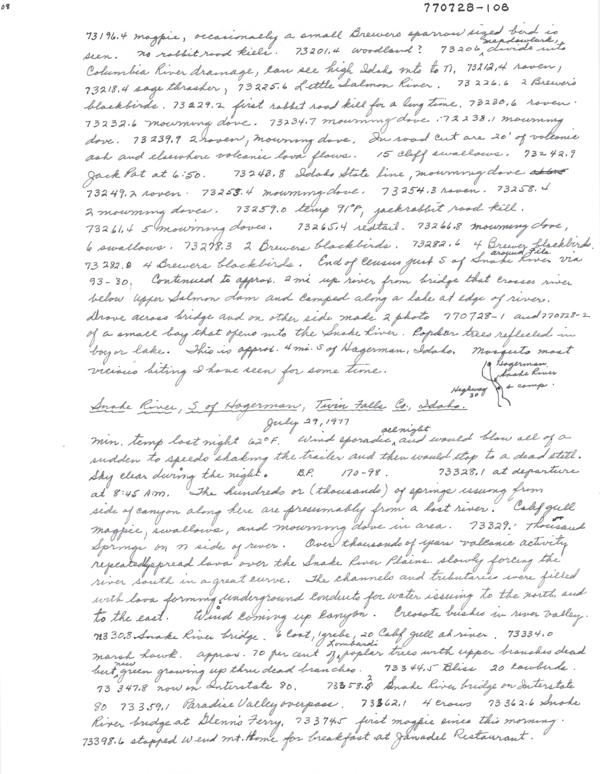 08
770728-108
73196.4 magpie, occasionally a small Brewers sparrow sized bird is
seen. No rabbit road kills. 73201.4 woodland? 73206 meadowlark, divide into
Columbia River drainage, can see high Idaho mts to N, 73212.4 raven,
73218.4 sage thrasher, 73225.6 Little Salmon River. 73226.6 2 Brewers
blackbirds. 73229.2 first rabbit road kill for a long time, 73230.6 raven.
73232.6 mourning dove. 73234.7 mourning dove. 73238.1 mourning
dove. 73239.9 2 raven, mourning dove. In road cut are 20' of volcanic
ash and elsewhere volcanic lava flows. 15 cliff swallows. 73242.9
Jack Pot at 6:50. 73243.8 Idaho State line, mourning dove
73249.2 raven. 73253.4 mourning dove. 73254.3 raven. 73258.4
2 mourning doves. 73259.0 temp 91°F, jackrabbit road kill.
73261.4 5 mourning doves. 73265.4 redtail. 73266.8 mourning dove,
6 swallows. 73278.3 2 Brewers blackbirds. 73282.6 4 Brewer blackbirds.
73282.8 4 Brewers blackbirds. End of census just S of Snake River via
around Filer
93-30. Continued to approx. 2 mi up river from bridge that crosses river
below Upper Salmon dam and camped along a lake at edge of river.
Drove across bridge and on other side made 2 photo 770728-1 and 770728-2
of a small bay that opens into the Snake River. Poplar trees reflected in
bay or lake. This is approx. 4 mi. S of Hagerman, Idaho. Mosquito most
vicious biting I have seen for some time.
Hagerman
Snake River
Highway 30
camp.
Snake River, S of Hagerman, Twin Falls Co., Idaho.
July 29, 1977
Min. temp last night 62°F. Wind sporadic all night and would blow all of a
sudden to speeds shaking the trailer and then would stop to a dead still.
Sky clear during the night. B.P. 170-98. 73328.1 at departure
at 8:45 A.M. The hundreds or (thousands) of springs issuing from
side of canyon along here are presumably from a lost river. Calif gull
magpie, swallows, and mourning dove in area. 73329. Thousand
Springs on N side of river. Over thousands of years volcanic activity
repeatedly spread lava over the Snake River Plains slowly forcing the
river south in a great curve. The channels and tributaries were filled
with lava forming underground conduits for water issuing to the north and
to the east. Wind coming up canyon. Creosote bushes in river valley.
73330.8 Snake River bridge. 6 coot, 1 grebe, 20 Calif gull at river. 73334.0
marsh hawk. approx. 70 per cent of Lombardi poplar trees with upper branches dead
but new green growing up thru dead branches. 73344.5 Bliss 20 cowbirds.
73347.8 now on Interstate 80. 73358.2 Snake River bridge on Interstate
80 73359.1 Paradise Valley overpass. 73362.1 4 crows 73362.6 Snake
River bridge at Glenns Ferry, 73374.5 first magpie since this morning.
73398.6 stopped W end Mt. Home for breakfast at Restaurant.